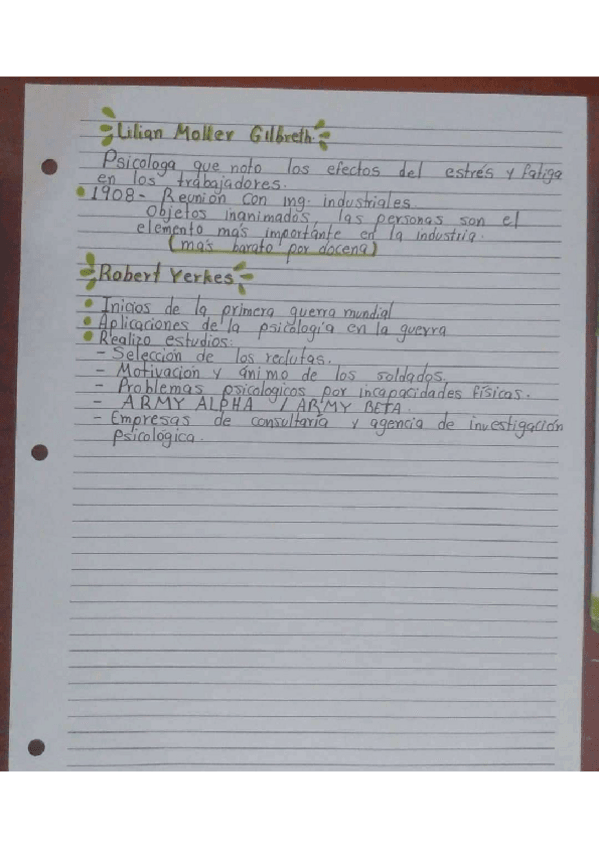 Lilian Moller Gilbreth
Psicologa que noto los efectos del estrés y fatiga
en los trabajadores.
• 1908- Reunion con ing. industriales
Objetos inanimados, las personas son el
elemento más importante en la industria.
(más barato por docena)
Robert Yerkes
• Inicios de la primera guerra mundial
• Aplicaciones de la psicología en la guerra
• Realizo estudios:
- Selección de los reclutas.
- Motivación y ánimo de los soldados.
- Problemas psicologicos por incapacidades físicas.
- ARMY ALPHA / ARMY BETA.
- Empresas de consultaría y agencia de investigación
psicológica.